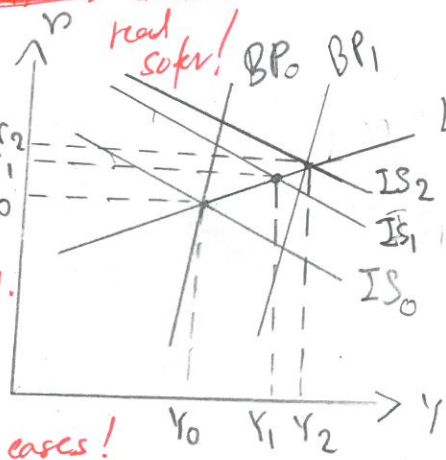 r
real
BP₀ BP₁
r₂
r₁
IS₂
IS₁
IS₀
Y₀ Y₁ Y₂ Y
eases!